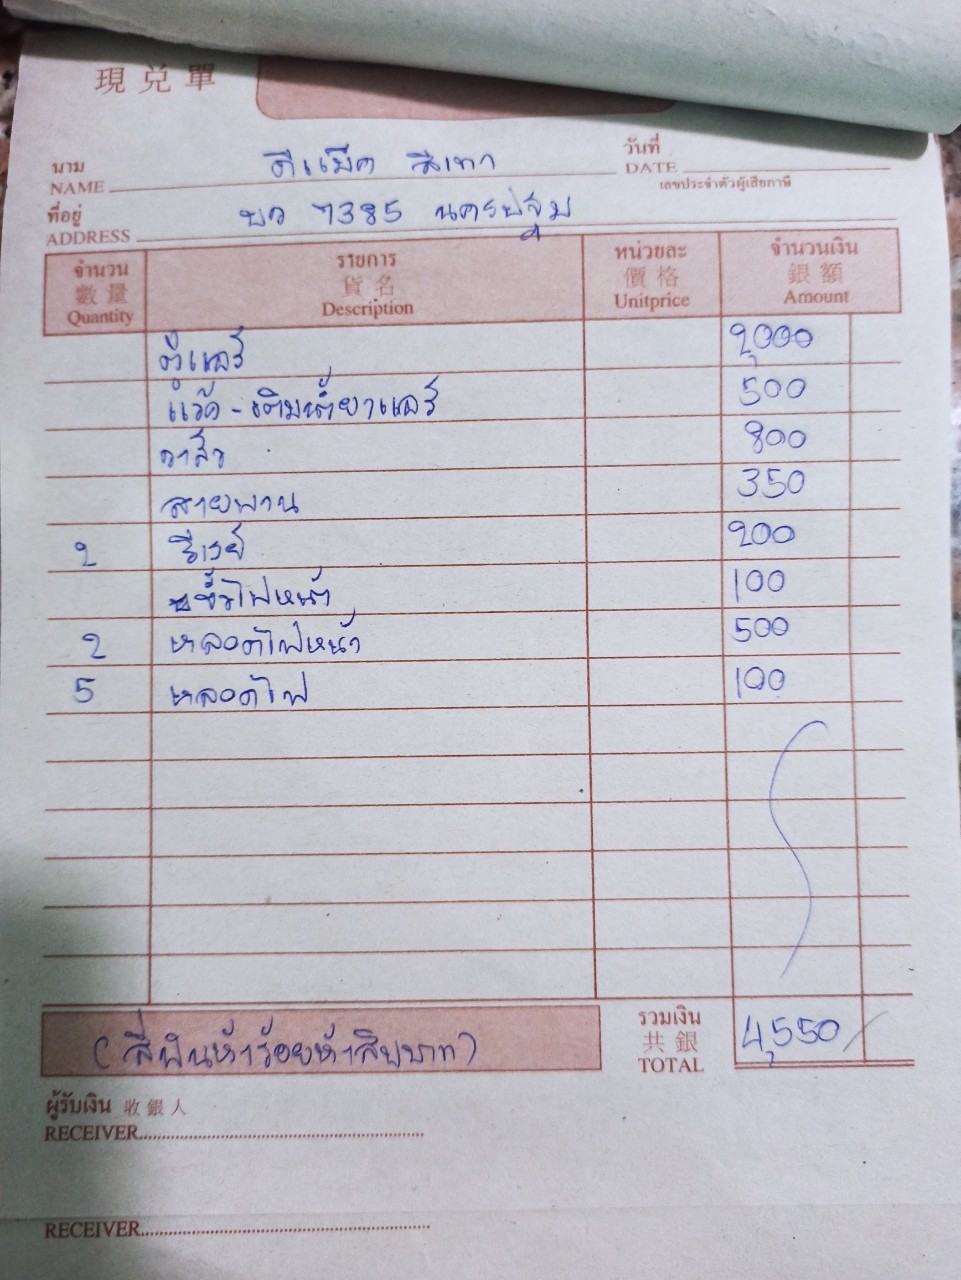 現兌單
นาม ดีแม็ค สีเทา วันที่
NAME DATE
เลขประจำตัวผู้เสียภาษี
ที่อยู่ บว 7385 นครปฐม
ADDRESS
จำนวน รายการ หน่วยละ จำนวนเงิน
數量 貨名 價格 銀額
Quantity Description Unitprice Amount
ตู้แอร์ 2,000
แว๊ค - เติมน้ำยาแอร์ 500
วาล์ว 800
สายพาน 350
2 รีเรย์ 200
ขั้วไฟหน้า 100
2 หลอดไฟหน้า 500
5 หลอดไฟ 100
รวมเงิน
(สี่พันห้าร้อยห้าสิบบาท) 共銀 4,550
TOTAL
ผู้รับเงิน 收銀人
RECEIVER
RECEIVER